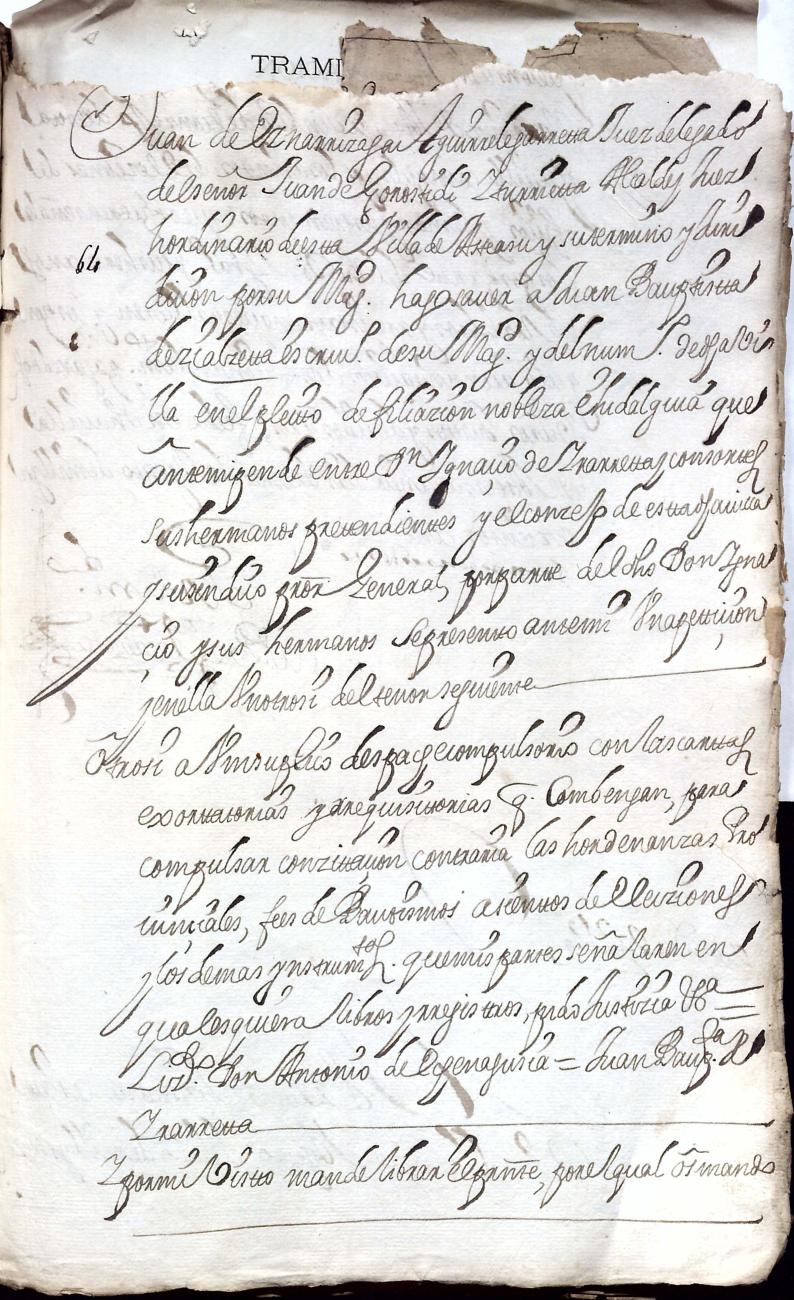 TRAMI
Juan de Yznarrizaga Aguirrelezarreta Juez delegado
del señor Juan de Gorostidi Yturrieta Alcalde y Juez
64
hordinario de esta Villa de Asteasu y su termino y Juris
dicion por su Magd. hago saver a Juan Bauptista
de zalzetta escriu.o de su Magd. y del num.o de esa Vi
lla en el pleito de filiazion nobleza e hidalguia que
ante mi pende entre Dn Ygnacio de Yrarreta y consortes
sus hermanos pretendientes y el conzejo de esta dha villa
y su sindico pror General, por parte del dho Don Ygna
cio y sus hermanos se presento ante mi Vna petticion
y en ella Vn otrosi del tenor seguiente
Otrosi a Vm suplico despache compulsorio con las cartas
exortatorias y requisitorias q. Combengan, para
compulsar con zitacion contraria las hordenanzas Pro
vinciales, fees de Bautismos asientos de Elleziones
y los demas ynstrumtos. que mis partes señalaren en
qualesquiera libros y rregistros, pido Justizia &a
Lizdo. Don Antonio de = Juan Baupta. de
Yrarreta
Y por mi Visto mande librar el prnte, por el qual os mando